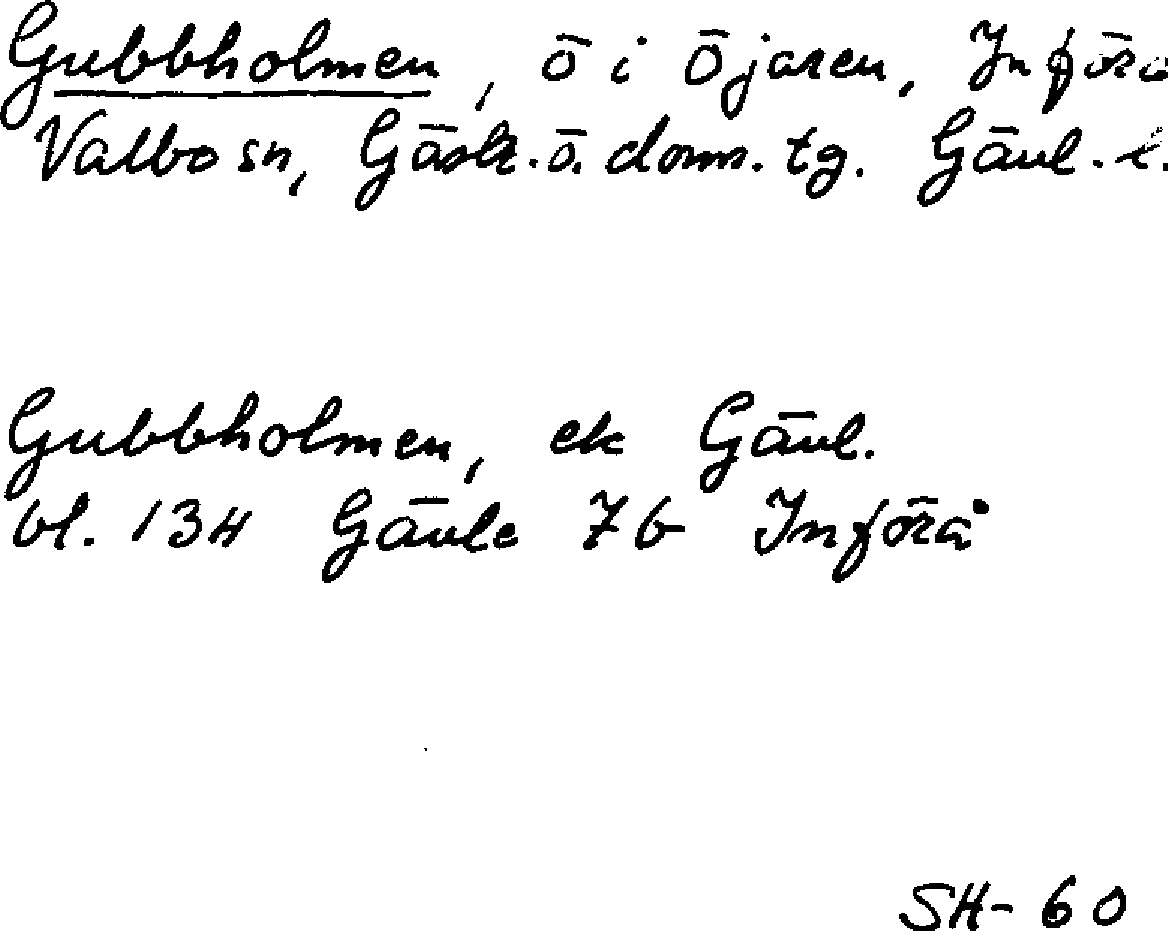 Gubbholmen, ö i Öjaren, Införå
Valbo sn, Gästr. ö. doms. tg. Gävl. l.
Gubbholmen, ek Gävl.
bl. 134 Gävle 7b Införå
SH-60